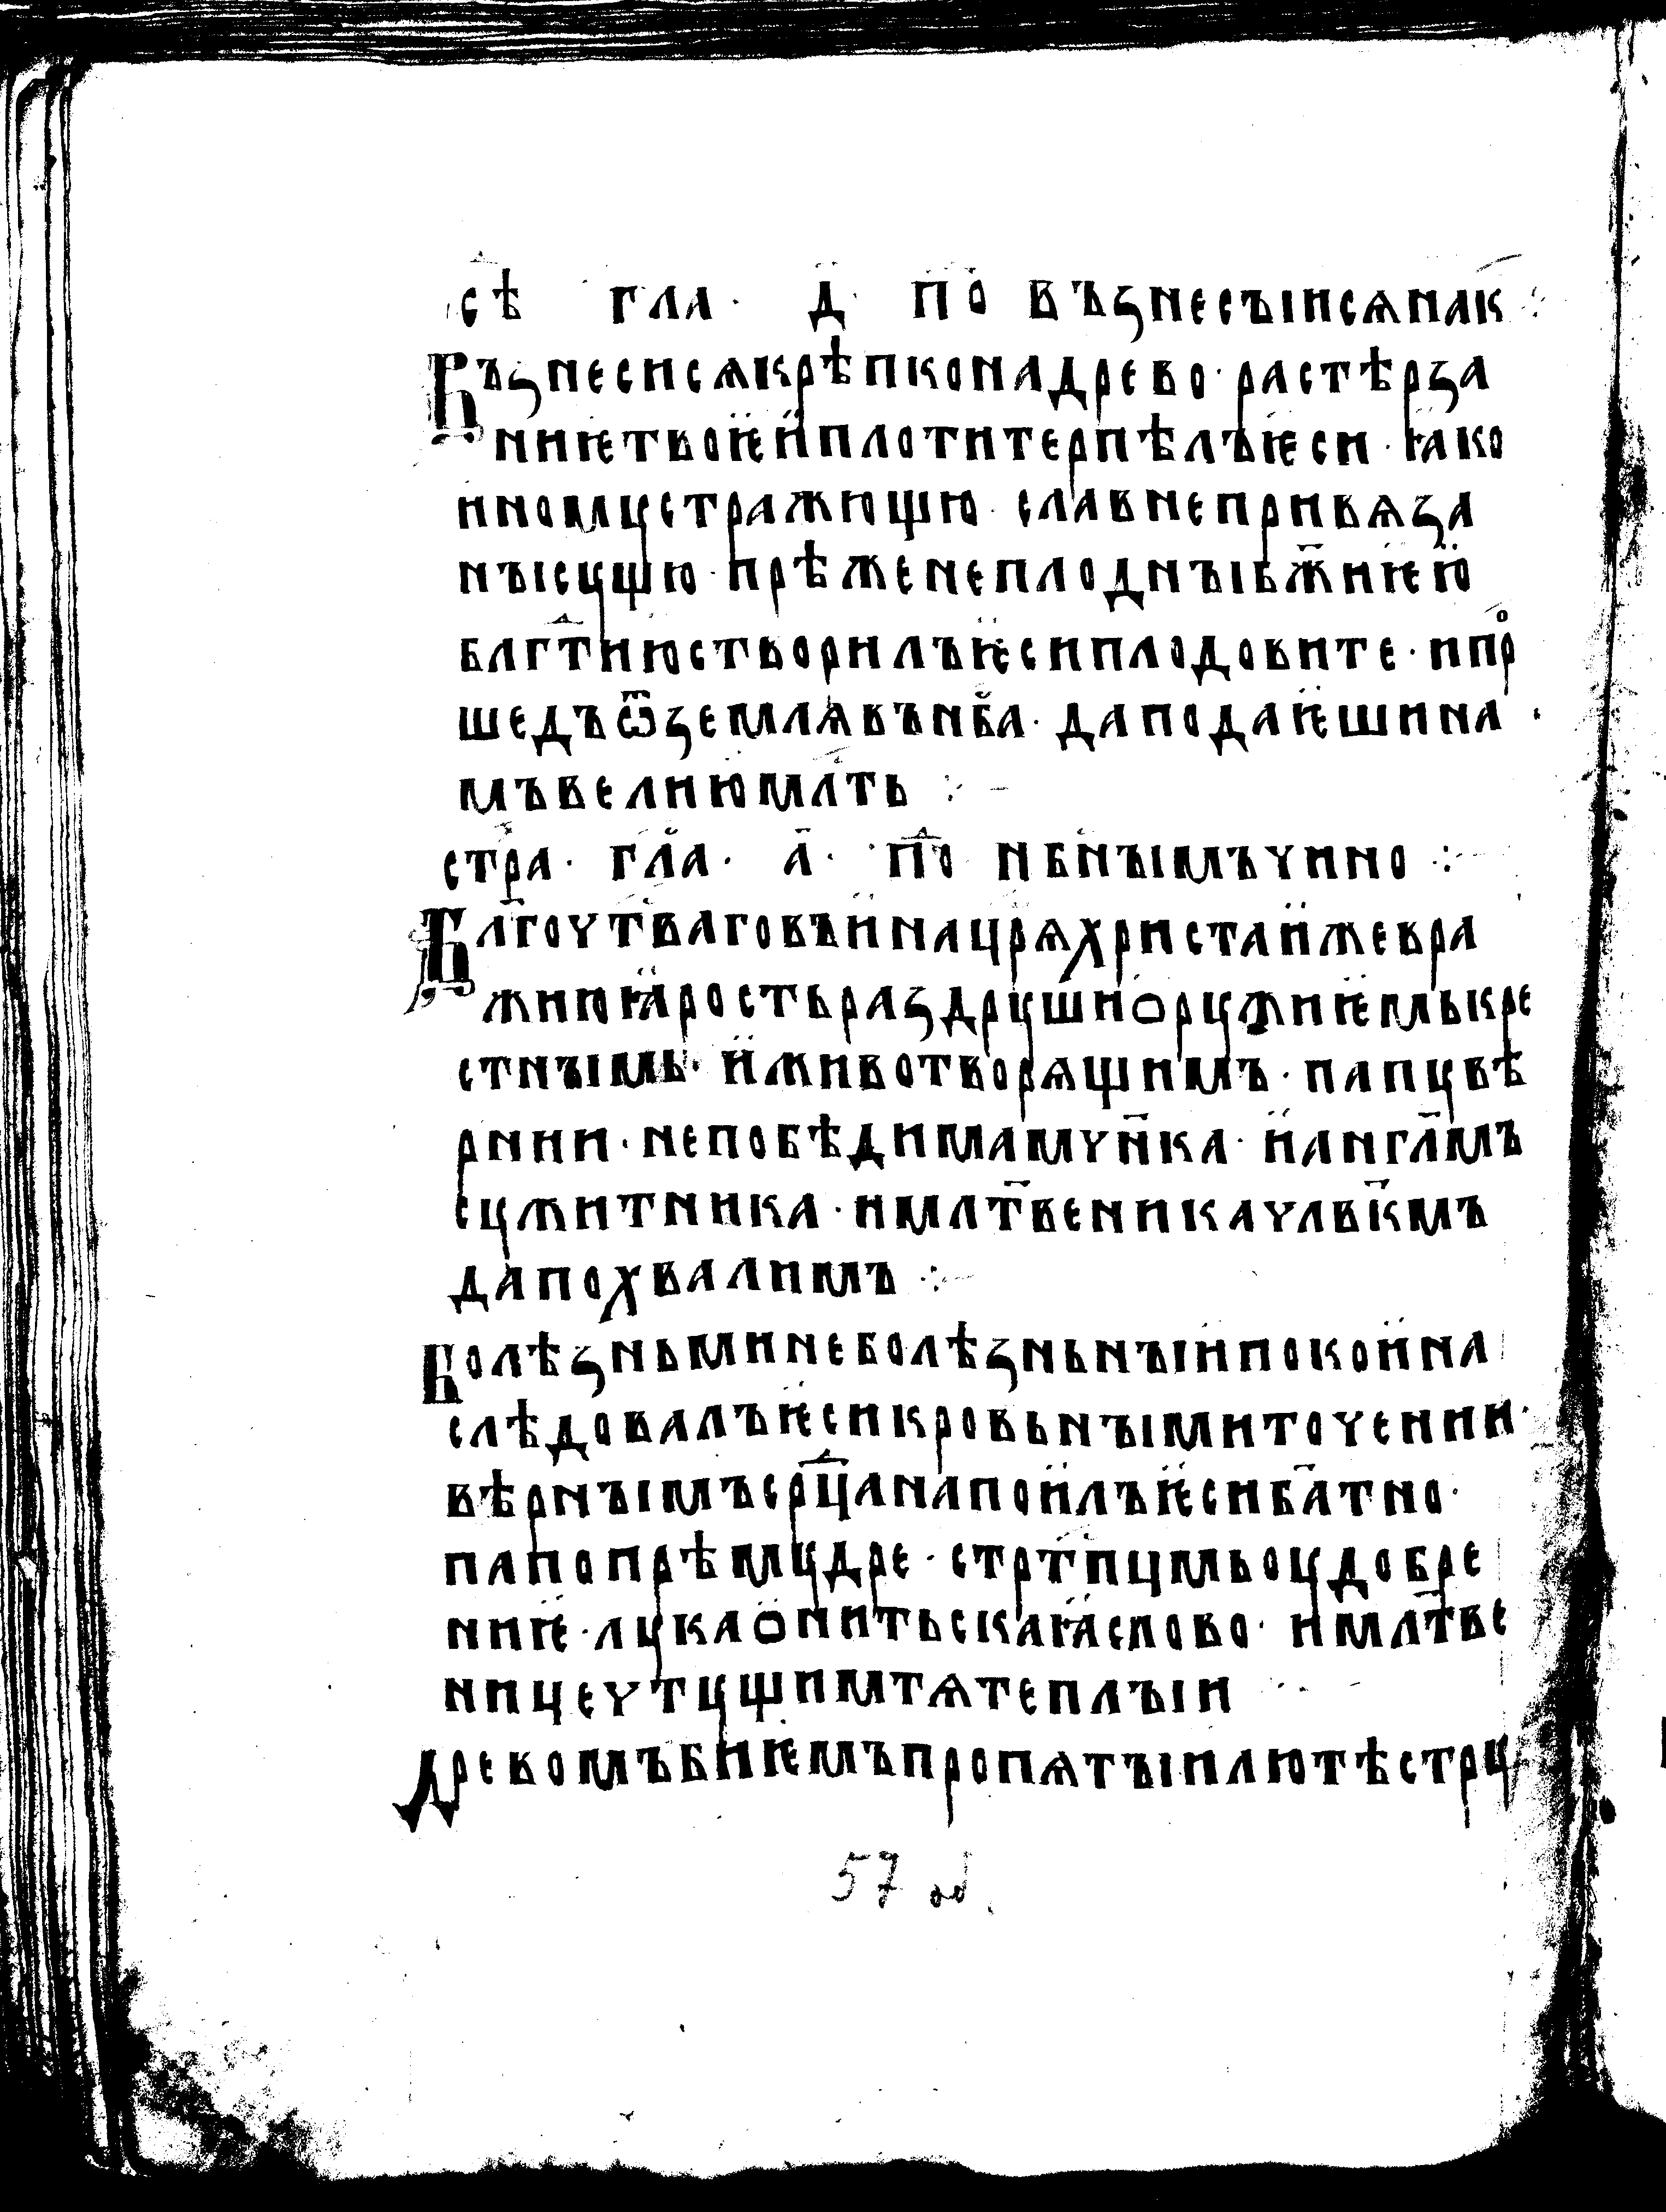 сѣ гла · д · по възнесыисѧнак ⁘
Възнесисѧкрѣпконадрево · растѣрза
ниѥтвоѥи҆плотитерпѣлъѥси · ꙗко
иномꙋстражющю · славнепривѧза
нысꙋщю · прѣженеплодныбж҃иѥю
блг҃тиюстворилъѥсиплодовите · ипрⷪ
шедъѿземлѧвън҃ба · даподаѥшина ·
мъвелиюмлть ⁘ –
стра · гла · а҃ · по нб҃нымъчино ⁘
Бл҃гоут҃ваговѣинацр҃ѧхристаижевра
жиюꙗростьраздрꙋшиорꙋжиѥмькре
стнымь · иживотворѧщимъ · папꙋвѣ
рнии · непобѣдимамчн҃ка · иангл҃мъ
сꙋжитника · имлт҃веникачлвк҃мъ
дапохвалимъ ⁘
Болѣзньминеболѣзньныипокоина
слѣдовалъѥсикровьнымиточении ·
вѣрнымъср҃цанапоилъѥсиба҃тно ·
папопрѣмꙋдре · стрт҃пцмьоꙋдобре
ниѥ · лꙋкаѻнитьскаꙗслово · имлт҃ве
ницечтꙋщимтѧтеплыи
Древомъбиѥмъпропѧтыилютѣстрꙋ
57 об.